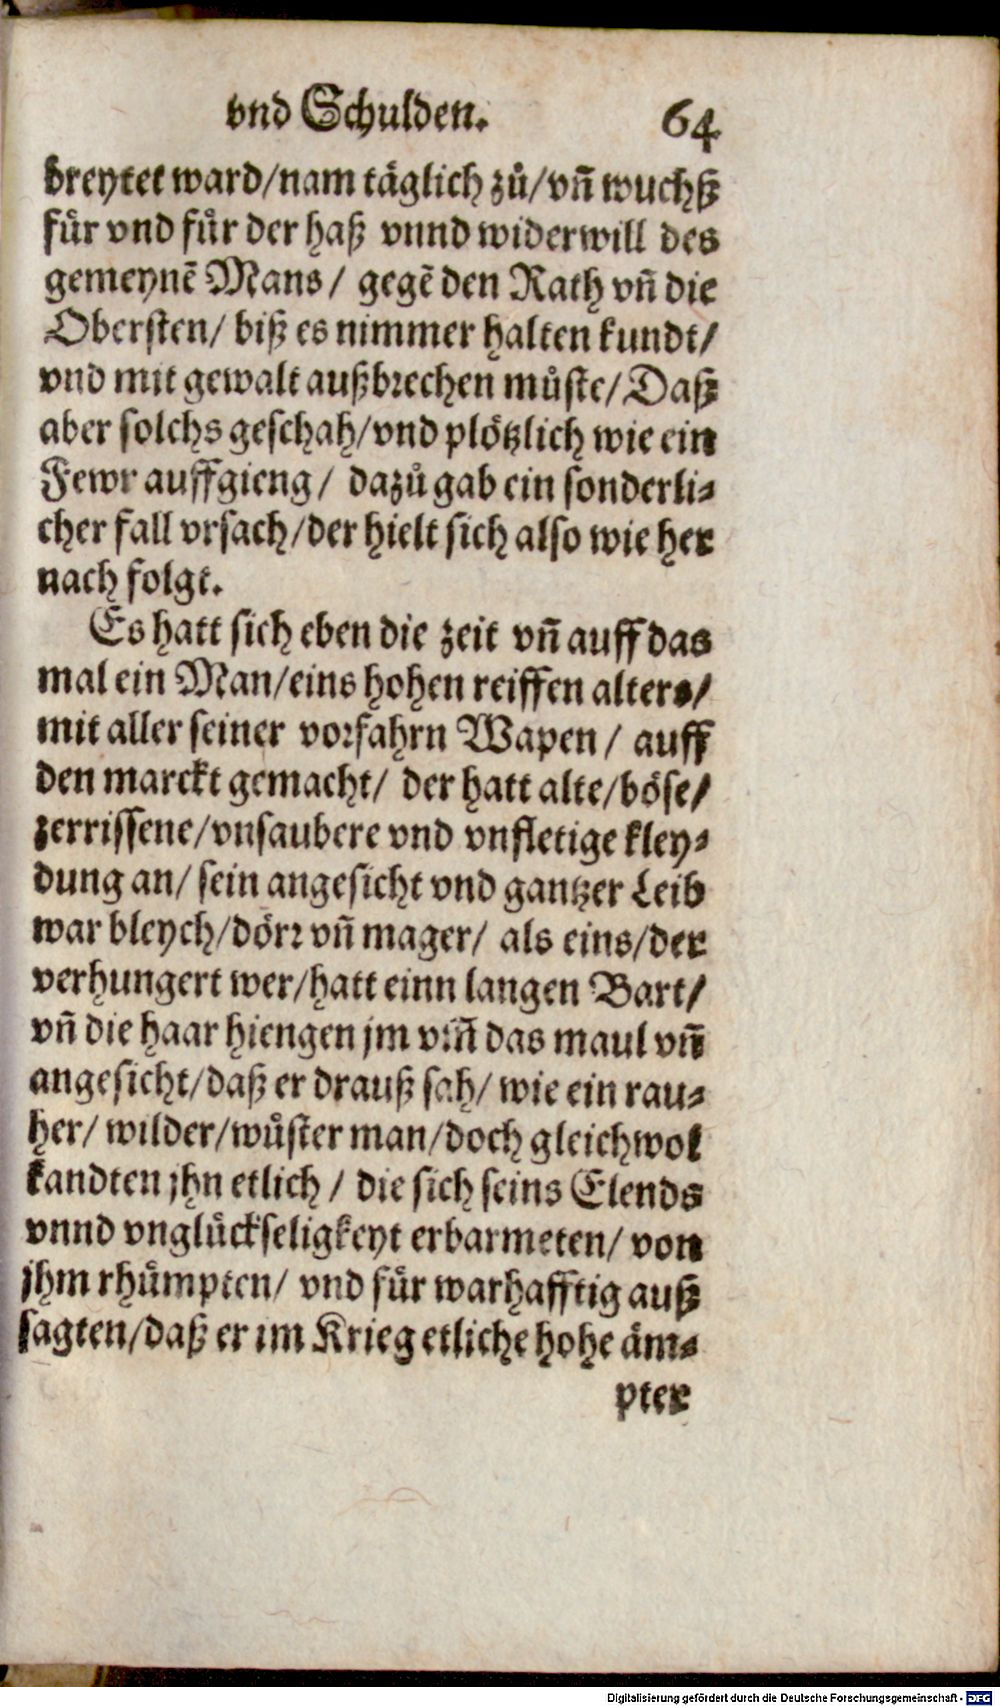 vnd Schulden. 64
breytet ward/nam täglich zů/vñ wuchß
für vnd für der haß vnnd widerwill des
gemeynẽ Mans/ gegẽ den Rath vñ die
Obersten/ biß es nimmer halten kundt/
vnd mit gewalt außbrechen můste/Daß
aber solchs geschah/vnd plötzlich wie ein
Fewr auffgieng/ dazů gab ein sonderli⸗
cher fall vrsach/der hielt sich also wie her
nach folgt.
Es hatt sich eben die zeit vñ auff das
mal ein Man/eins hohen reiffen alters/
mit aller seiner vorfahrn Wapen/ auff
den marckt gemacht/ der hatt alte/böse/
zerrissene/vnsaubere vnd vnfletige kley⸗
dung an/ sein angesicht vnd gantzer Leib
war bleych/dörr vñ mager/ als eins/der
verhungert wer/hatt einn langen Bart/
vñ die haar hiengen jm vm̃ das maul vñ
angesicht/daß er drauß sah/ wie ein rau⸗
her/ wilder/wůster man/doch gleichwol
kandten jhn etlich/ die sich seins Elends
vnnd vnglückseligkeyt erbarmeten/ von
jhm rhůmpten/ vnd für warhafftig auß
sagten/daß er im Krieg etliche hohe äm⸗
pter
Digitalisierung gefördert durch die Deutsche Forschungsgemeinschaft - DFG